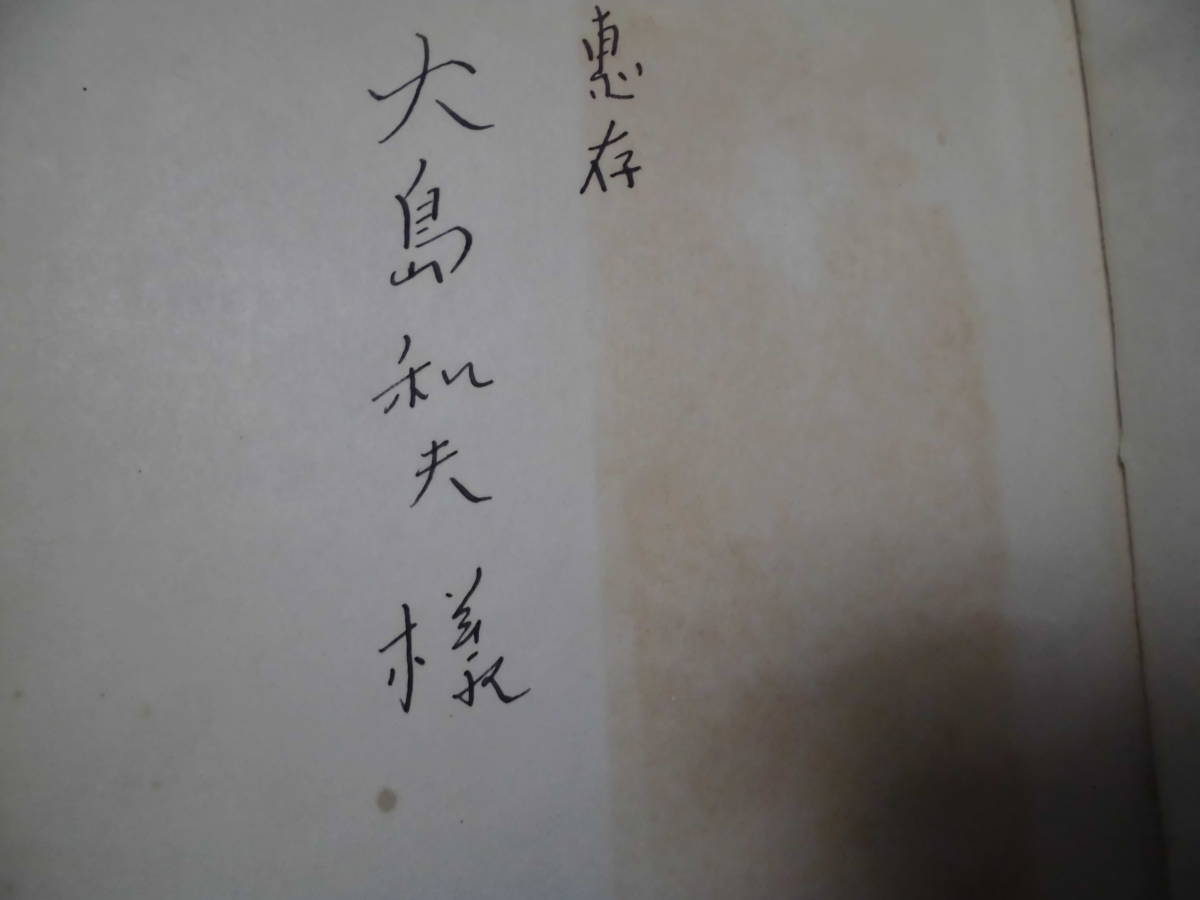 惠存
大島和夫様